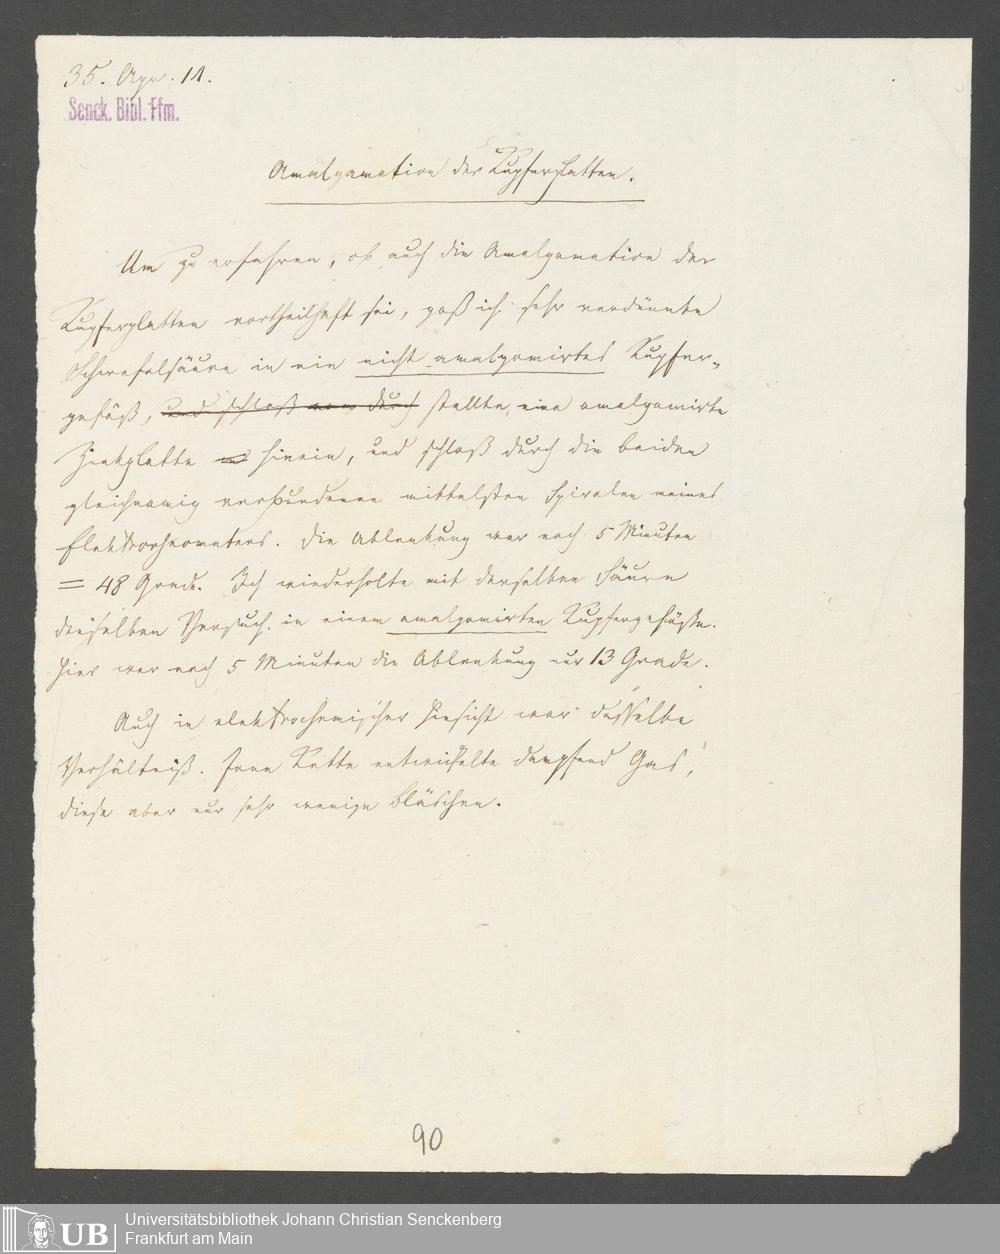 35. Apr. 11.
Senck. Bibl. Ffm.
Amalgamation der Kupferplatten.
Um zu erfahren, ob auch die Amalgamation der
Kupferplatten vortheilhaft sei, goß ich sehr verdünnte
Schwefelsäure in ein nicht amalgamirtes Kupfer-
gefäß, und schloß nun durch stellte eine amalgamirte
Zinkplatte hinein, und schloß durch die beiden
gleichnamig verbundenen mittelsten Spiralen meines
Elektrorheometers. Die Ablenkung war nach 5 Minuten
= 48 Grade. Ich wiederholte mit derselben Säure
denselben Versuch in einem amalgamirten Kupfergefäße.
Hier war nach 5 Minuten die Ablenkung nur 13 Grade.
Auch in elektrochemischer Hinsicht war dasselbe
Verhältniß. Jene Kette entwickelte dampfend Gas,
diese aber nur sehr wenige Bläschen.
90
UB
Universitätsbibliothek Johann Christian Senckenberg
Frankfurt am Main